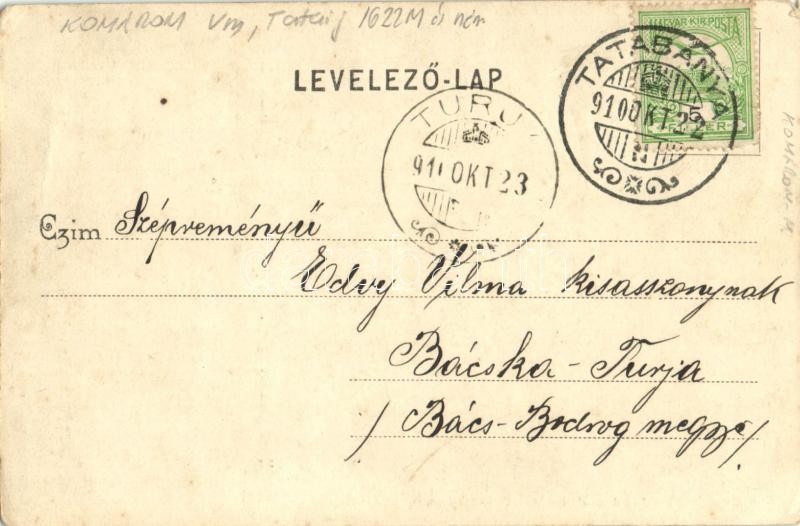 KOMÁROM Vm,
LEVELEZŐ-LAP
MAGYAR KIR. POSTA
TATABÁNYA
910 OKT 22
TURJ
910 OKT 23
Czim Szépreményű
Edvy Vilma kisasszonynak
Bácska-Turja
/ Bács-Bodrog megye /
KOMÁROM. M